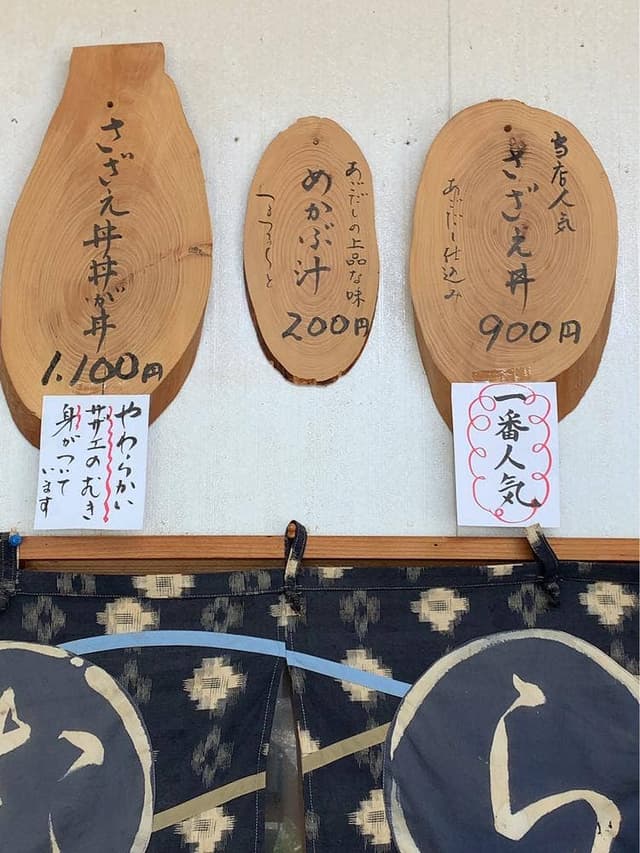 当店人気
さざえ丼
あごだし仕込み
900円
一番人気
あごだしの上品な味
めかぶ汁
つるつる〜と
200円
さざえ丼丼が丼
1.100円
やわらかい
サザエのむき
身がついて
います
ら